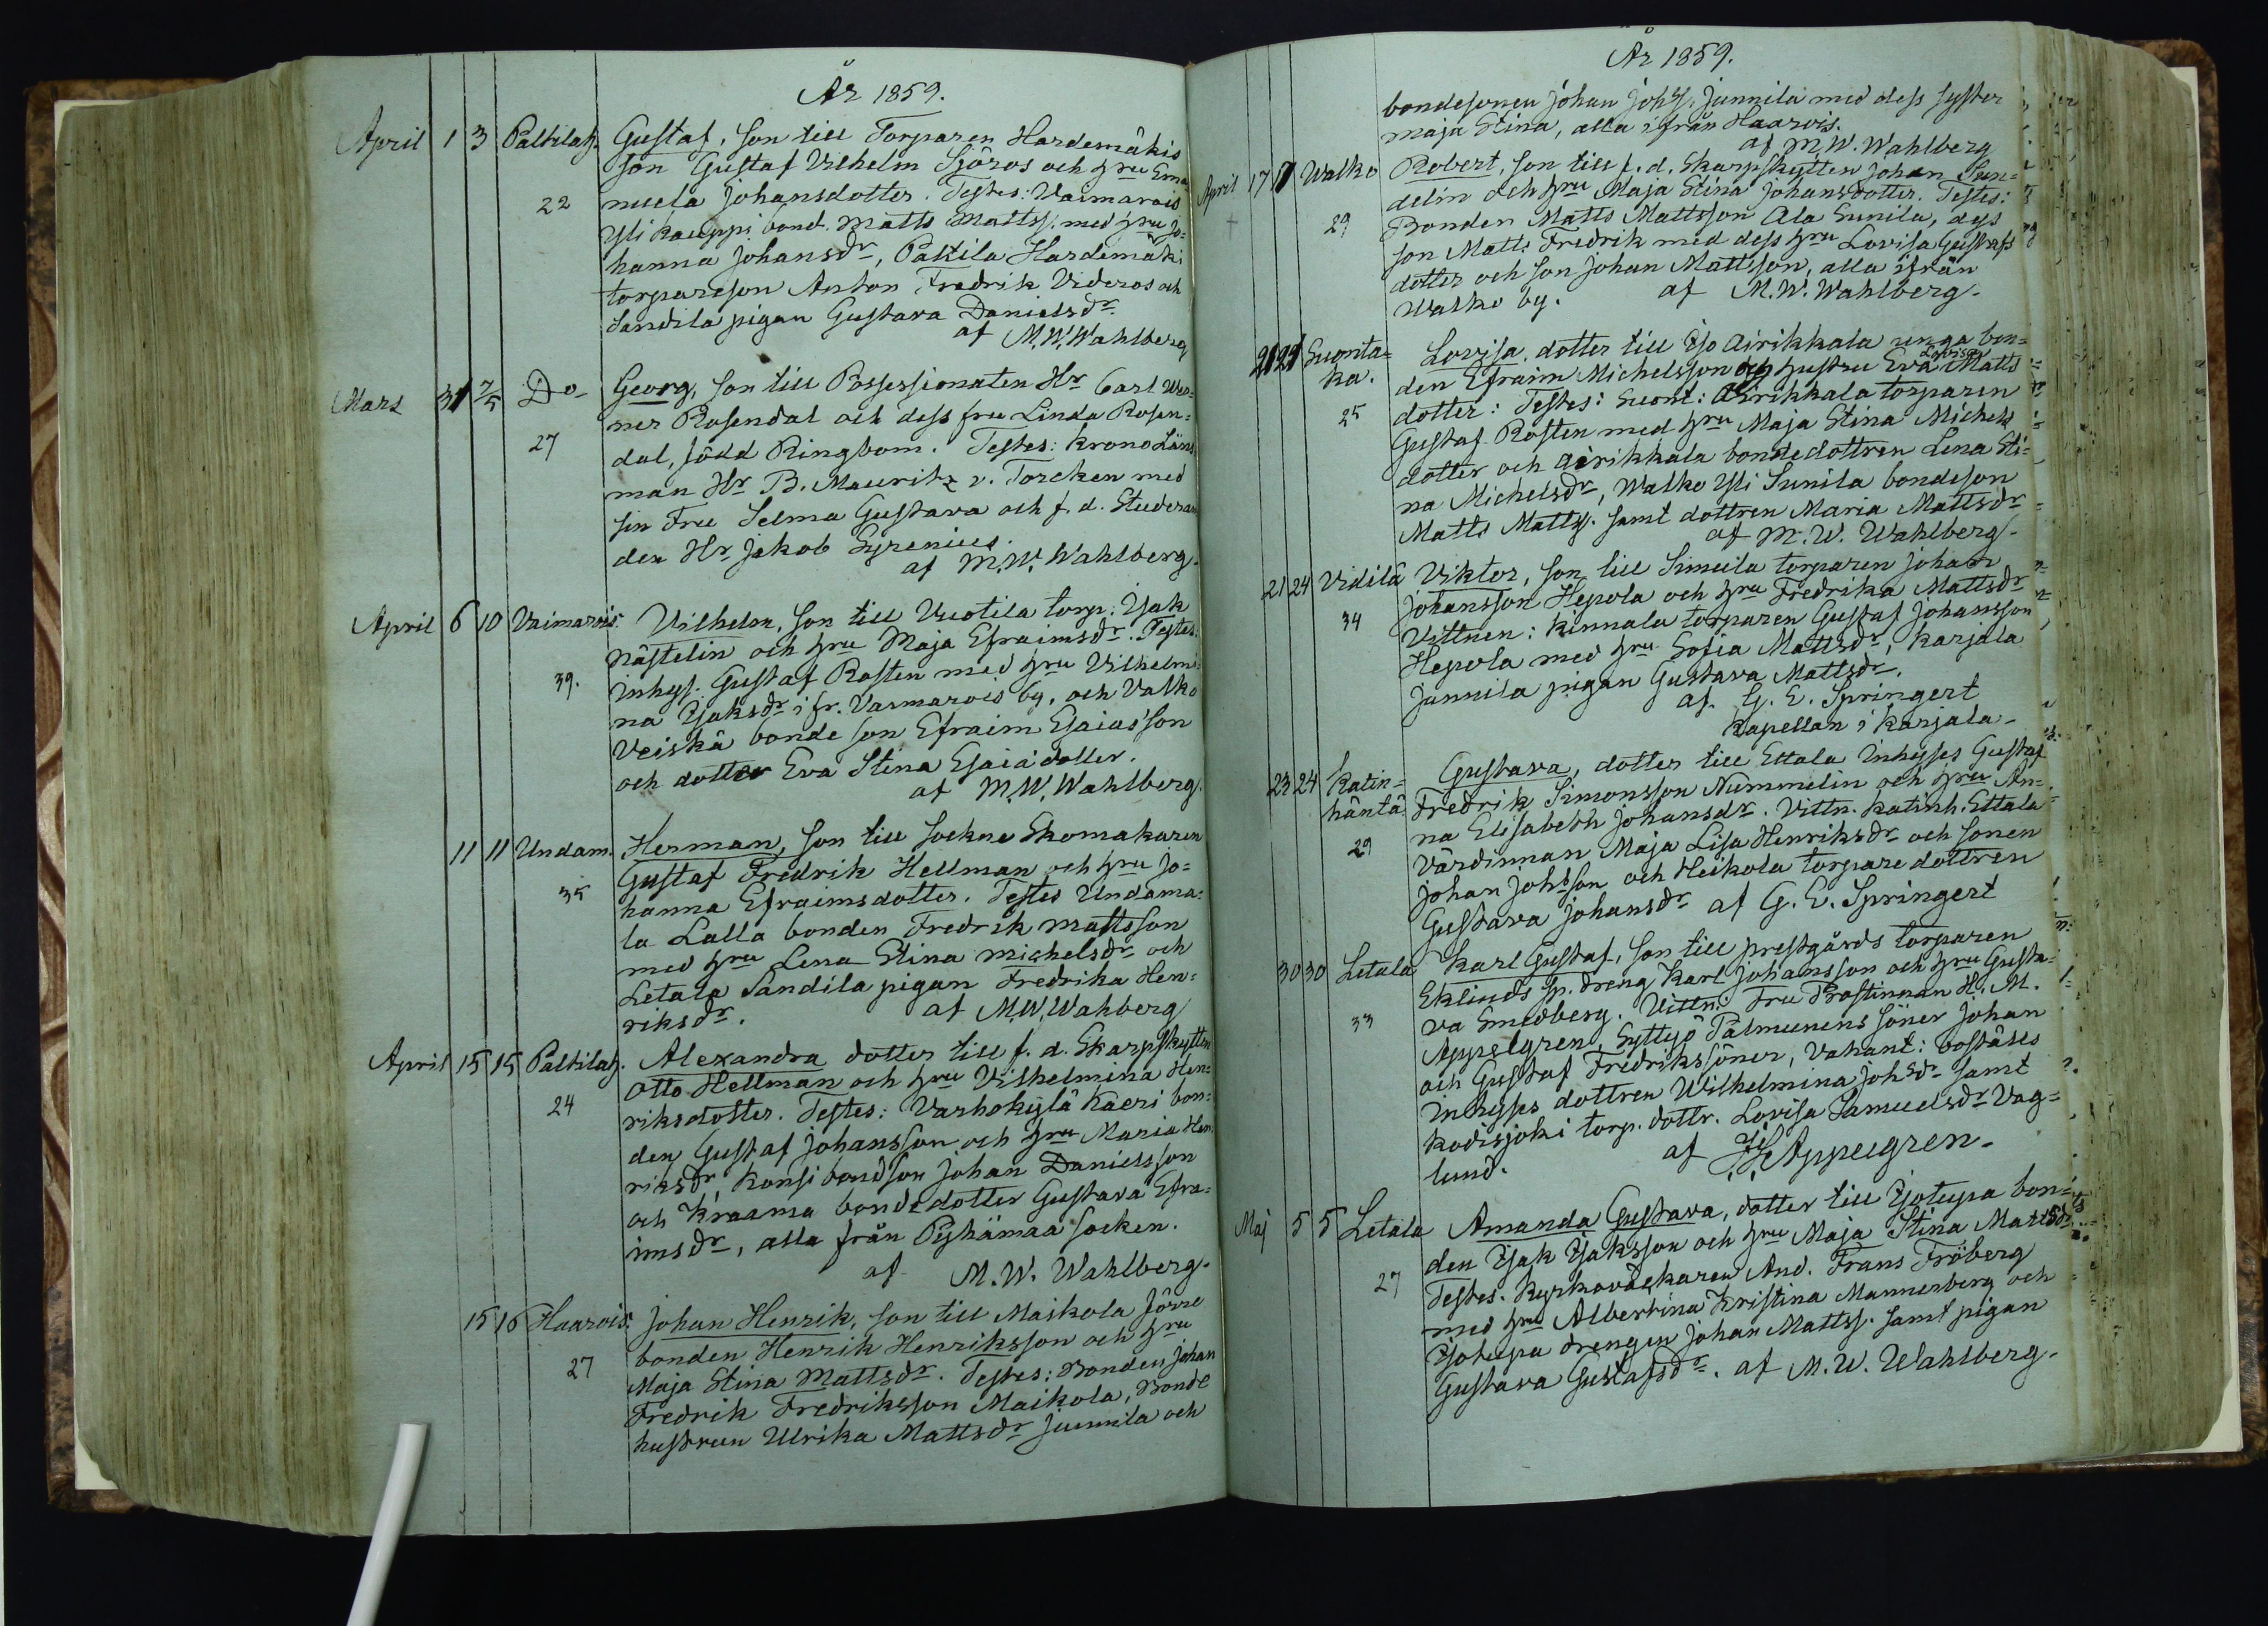 År 1859.
April 1 3 Paltilah. Gustaf, son till Torparen Hardemäkis
son Gustaf Vilhelm Sjöros och hru Ema
22 nuela Johansdotter. Testes: Vaimarois
Yli Kauppi bond. Matts Mattss. med hru Jo=
hanna Johansdr, Paltila Hardemäki
torpareson Anton Fredrik Videros och
Sandila pigan Gustava Danielsdr.
af M.W. Wahlberg
Mars 31 7/5 Do Georg, son till Possessionaten Hr Carl Wer=
ner Rosendal och dess fru Linda Rosen=
27 dal, född Ringbom. Testes: Krono Läns
man Hr B. Mauritz v. Torcken med
sin Fru Selma Gustava och f. d. Studeran
den Hr Jakob Syrenius.
af M.W. Wahlberg.
April 6 10 Vaimarois. Vilhelm, son till Vuotila torp. Isak
Nästelin och hru Maja Efraimsdr. Testes:
39. Inhys. Gustaf Rosten med hru Vilhelmi=
na Isaksdr ifr. Vasmarois by, och Valko
Veiskä bonde son Efraim Esaias'son
och dotter Eva Stina Esaiadotter.
af M.W. Wahlberg.
11 11 Undam. Herman, son till Sockne Skomakaren
Gustaf Fredrik Hellman och hru Jo=
35 hanna Efraimsdotter. Testes Undama=
la Lalla bonden Fredrik Mattsson
med hru Lena Stina Michelsdr och
Letala Sandila pigan Fredrika Hen=
riksdr. af M.W. Wahberg
April 15 15 Paltilah. Alexandra dotter till f. d. Skarpskytten
Otto Hellman och hru Vilhelmina Hen=
24 riksdotter. Testes: Varhokylä Kaeri bon=
den Gustaf Johansson och hru Maria Hen
riksdr, Konsi bondson Johan Danielsson
och Kraama bondedotter Gustava Efra=
imsdr, alla från Pyhämaa socken.
af M.W. Wahlberg.
15 16 Haarois. Johan Henrik, son till Maikola Jörre
bonden Henrik Henriksson och hru
27 Maja Stina Mattsdr. Testes: Bonden Johan
Fredrik Fredriksson Maikola, Bonde
hustrun Ulrika Mattsdr Junnila och
År 1859.
bondesonen Johan Johss. Junnila med dess syster
Maja Stina, alla ifrån Haarois.
af M.W. Wahlberg
April 17 17 Walko Robert, son till f. d. Skarpskytten Johan Sun=
delin och hru Maja Stina Johansdotter. Testes:
+ 29 Bonden Matts Mattsson Ala Sunila, dess
son Matts Fredrik med dess hru Lovisa Gustafs
dotter och son Johan Mattsson, alla ifrån
Walko by. af M.W. Wahlberg.
21 24 Suonta= Lovisa, dotter till Iso Airikkala unga bon=
ka. den Efraim Michelsson och hustru Eva Lovisa Matts
25 dotter: Testes: Suont: Airikkala torparen
Gustaf Rosten med hru Maja Stina Michels
dotter och Airikkala bondedottren Lena Sti=
na Michelsdr, Walko Yli Sunila bondeson
Matts Mattss. samt dottren Maria Mattsdr
af M.W. Wahlberg.
21 24 Vidilä Viktor, son till Simula torparen Johan
Johansson Hepola och hru Fredrika Mattsdr
34 Vittnen: Kinnala torparen Gustaf Johansson
Hepola med hru Sofia Mattsdr, Karjala
Junnila pigan Gustava Mattsdr.
af G.E. Springert
Kapellan i Karjala.
23 24 Katin= Gustava, dotter till Ettala Inhyses Gustaf
häntä. Fredrik Simonsson Nummelin och hru An=
na Elisabeth Johansdr. Vittn. Katinh. Ettala
29 Värdinnan Maja Lisa Henriksdr och sonen
Johan Johsson och Heikola torpare dottren
Gustava Johansdr af G.E. Springert
30 30 Letala Karl Gustaf, son till prestgårds torparen
Eklinds sp. dreng Karl Johansson och hru Gusta=
33 va Smedberg. Vittn: Fru Prostinnan H. M.
Appelgren, Syttyö Palmunens söner Johan
och Gustaf Fredrikssöner, Vakant: bostäles
Inhyses dottren Wilhelmina Johsdr samt
Kodisjoki torp. dottr. Lovisa Samuelsdr Vag=
lund. af H Appelgren.
Maj 5 5 Letala Amanda Gustava, dotter till Isotupa bon=
den Isak Isaksson och hru Maja Stina Mattsdr
27 Testes. Kyrkoväktaren And. Frans Fröberg
med hru Albertina Kristina Mannerberg och
Isotupa drengen Johan Mattss. samt pigan
Gustava Gustafsdr. af M.W. Wahlberg.